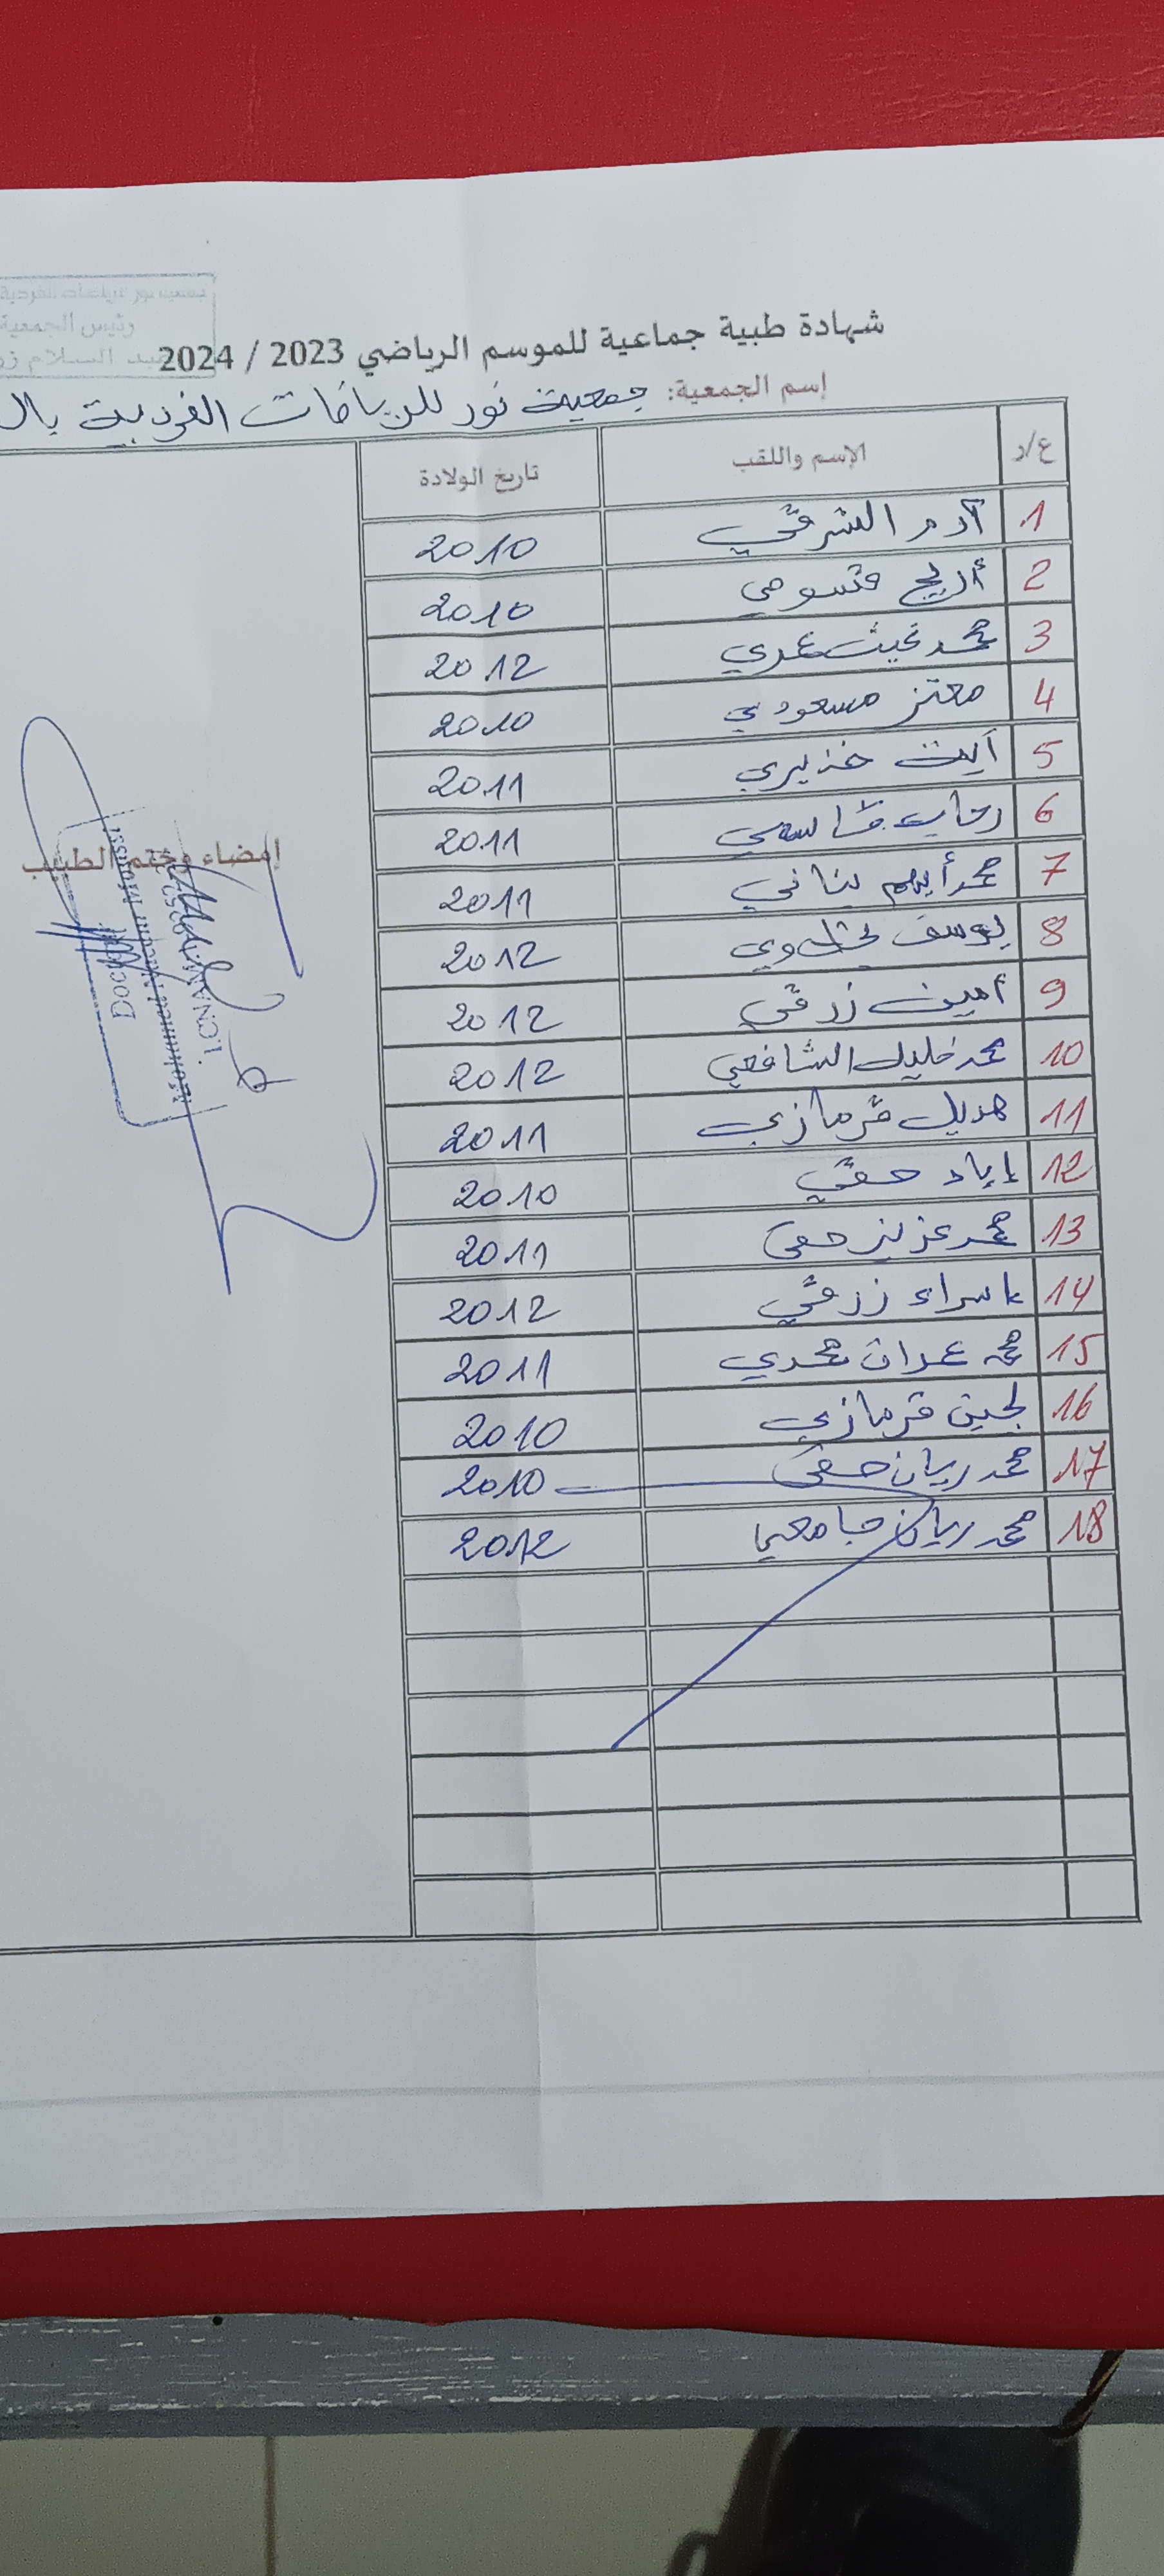 جمعية نور للرياضات الفردية
رئيس الجمعية
عبد السلام
شهادة طبية جماعية للموسم الرياضي 2023 / 2024
إسم الجمعية: جمعية نور للرياضات الفردية بال
ع/د الإسم واللقب تاريخ الولادة
1 آدم الشرقي 2010
2 أريج قسومي 2010
3 محمد غيث عمري 2012
4 معتز مسعودي 2010
5 آيت خذيري 2011
6 رحاب قاسمي 2011
7 محمد أيهم بناني 2011
8 يوسف 2012
9 أمين زرقي 2012
10 محمد خليل الشافعي 2012
11 هديل قرمازي 2011
12 إياد حقي 2010
13 محمد عزيز حقي 2011
14 إسراء زرقي 2012
15 محمد عمران محمدي 2011
16 لجين قرمازي 2010
17 محمد ريان حقي 2010
18 محمد ريان جامعي 2012
إمضاء وختم الطبيب
Docteur
Mohamed